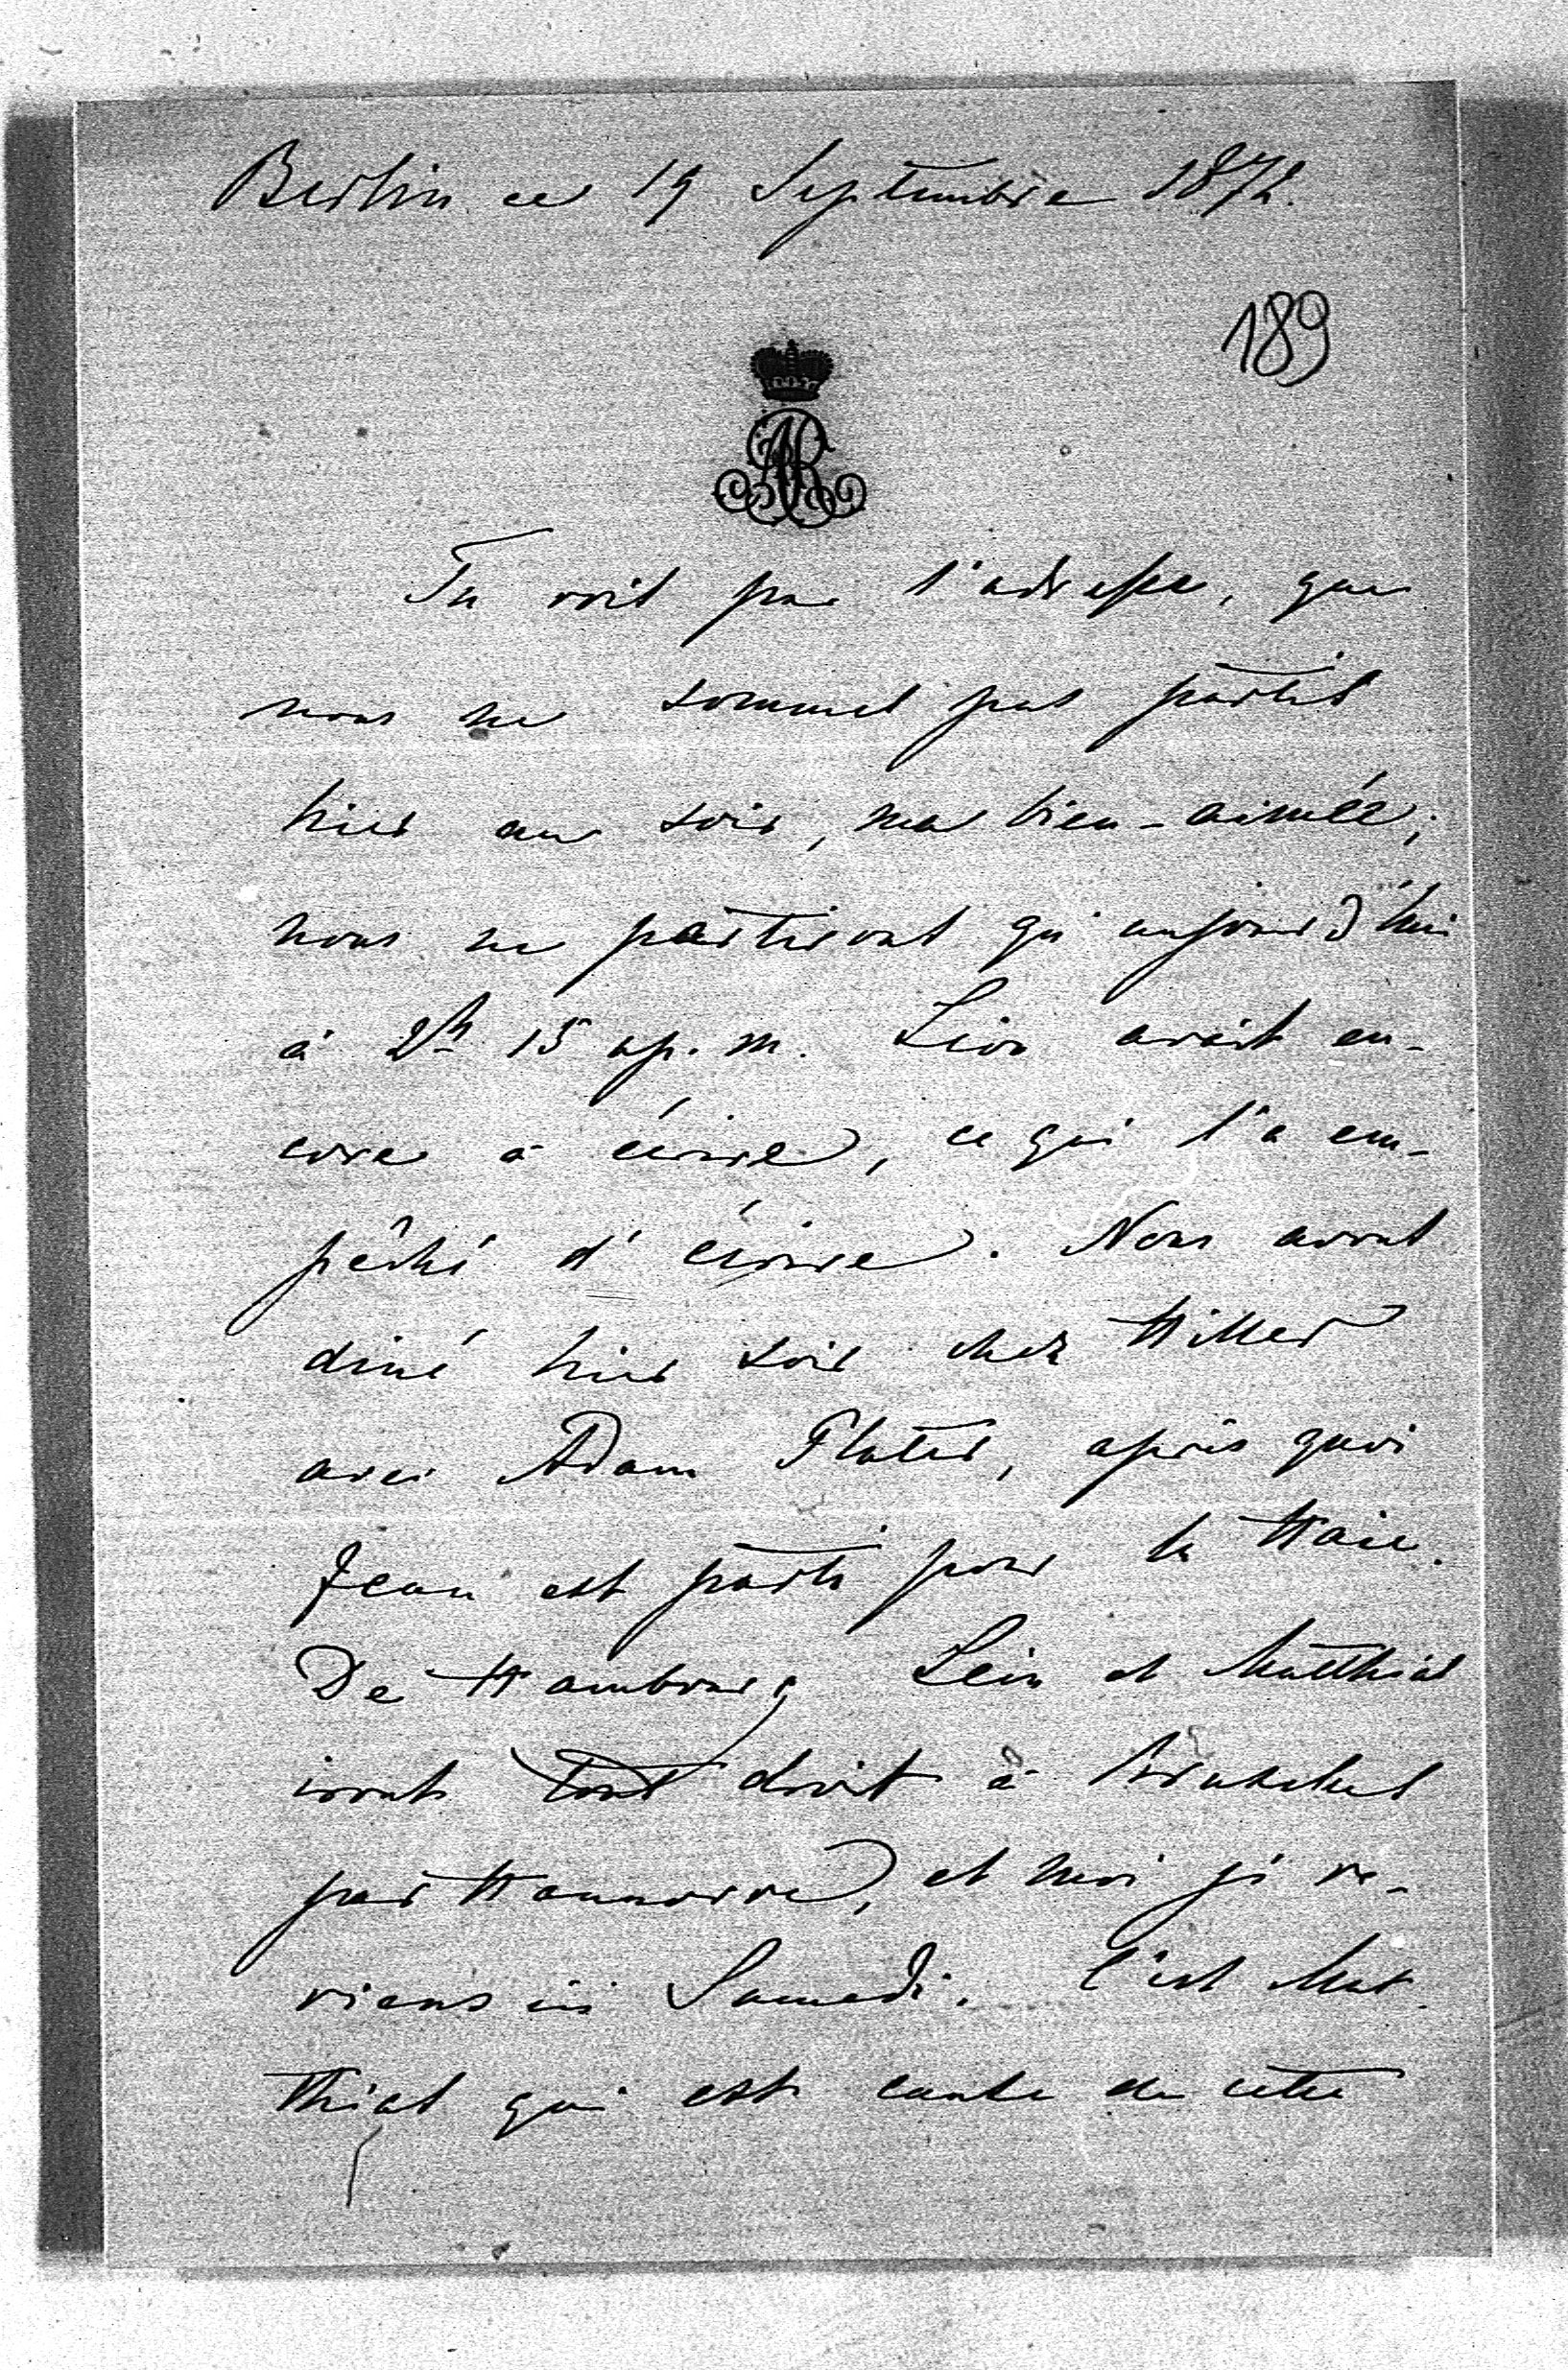 Berlin ce 19 Septembre 1872.
189
AR
Tu vois par l'adresse, que
nous ne sommes pas partis
hier au soir, ma bien-aimée;
nous ne partirons qu'aujourd'hui
à 2h 15 ap. m. Léon avait en-
core à écrire, ce qui l'a em-
pêché d'écrire. Nous avons
diné hier soir chez Hiller
avec Adam Plater, après quoi
Jean est parti pour la Haie.
De Hambourg Léon et Matthias
iront tout droit à Bruxelles
par Hannovre, et moi je re-
viens ici Samedi. C'est Mat-
thias qui est cause de cette